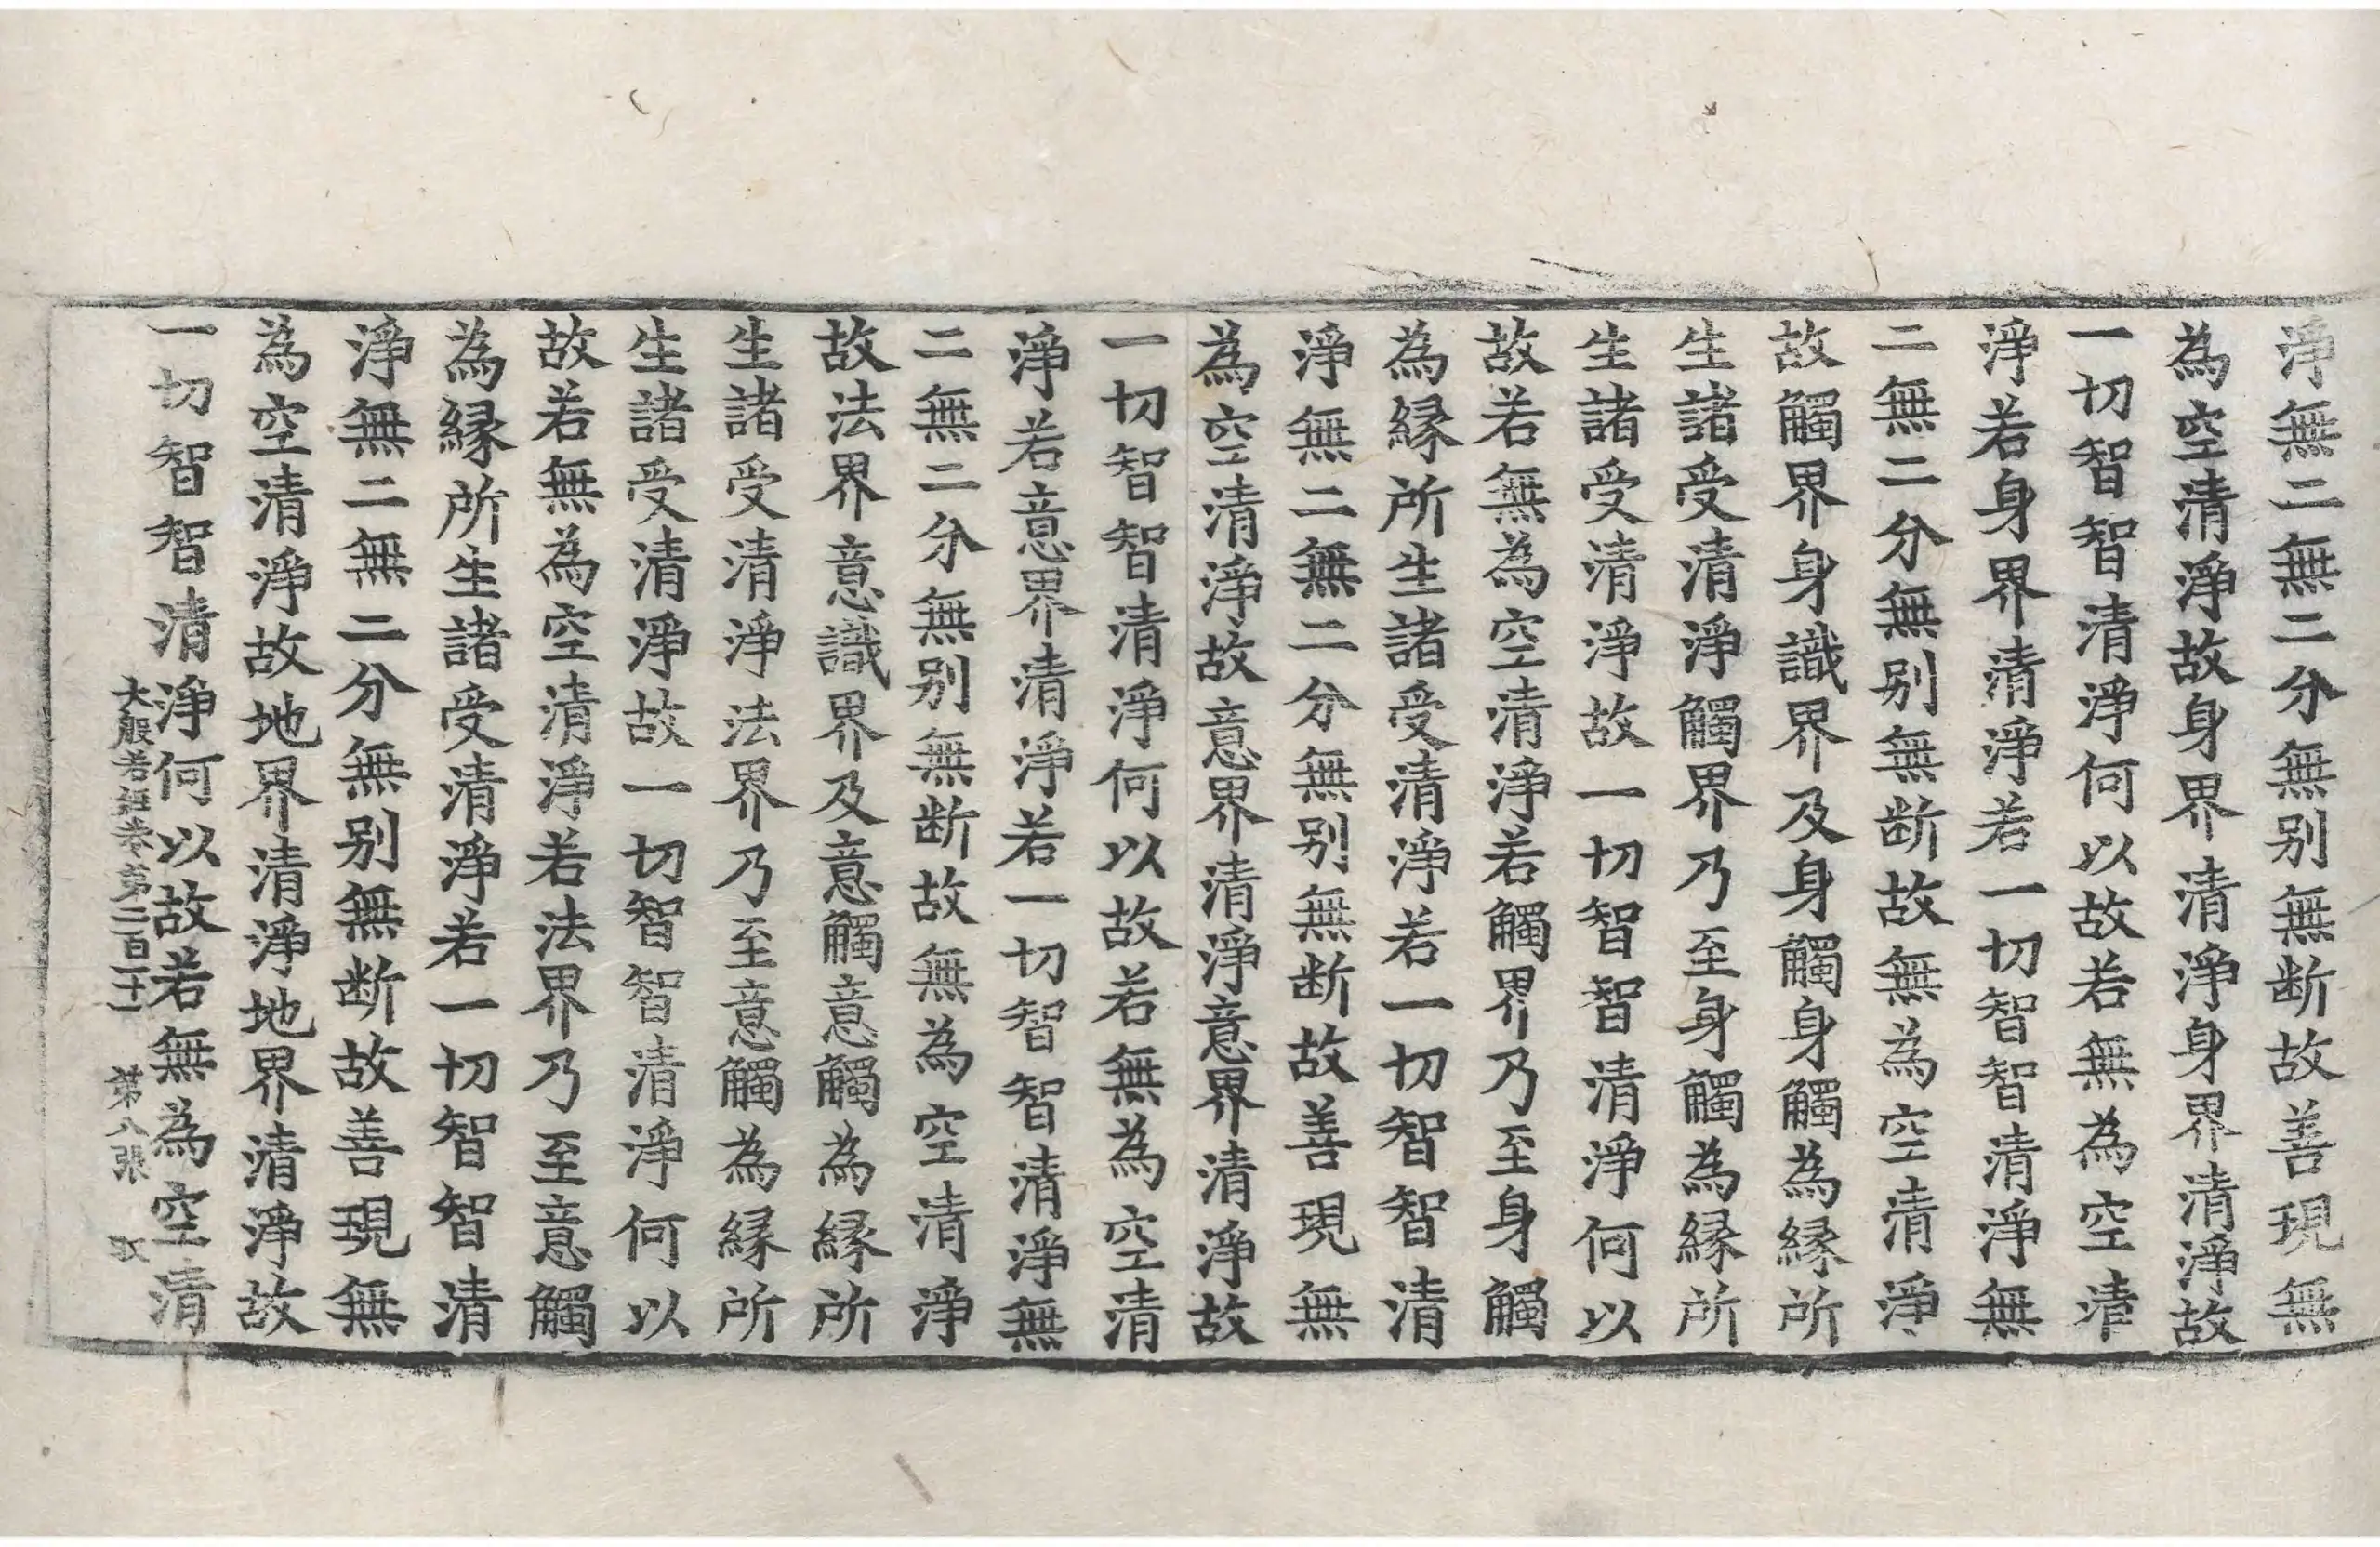 淨無二無二分無別無断故善現無
為空清淨故身界清淨身界清淨故
一切智智清淨何以故若無為空清
淨若身界清淨若一切智智清淨無
二無二分無別無断故無為空清淨
故觸界身識界及身觸身觸為縁所
生諸受清淨觸界乃至身觸為縁所
生諸受清淨故一切智智清淨何以
故若無為空清淨若觸界乃至身觸
為縁所生諸受清淨若一切智智清
淨無二無二分無別無断故善現無
為空清淨故意界清淨意界清淨故
一切智智清淨何以故若無為空清
淨若意界清淨若一切智智清淨無
二無二分無別無断故無為空清淨
故法界意識界及意觸意觸為縁所
生諸受清淨法界乃至意觸為縁所
生諸受清淨故一切智智清淨何以
故若無為空清淨若法界乃至意觸
為縁所生諸受清淨若一切智智清
淨無二無二分無別無断故善現無
為空清淨故地界清淨地界清淨故
一切智智清淨何以故若無為空清
大般若經卷第二百二十二 第八張